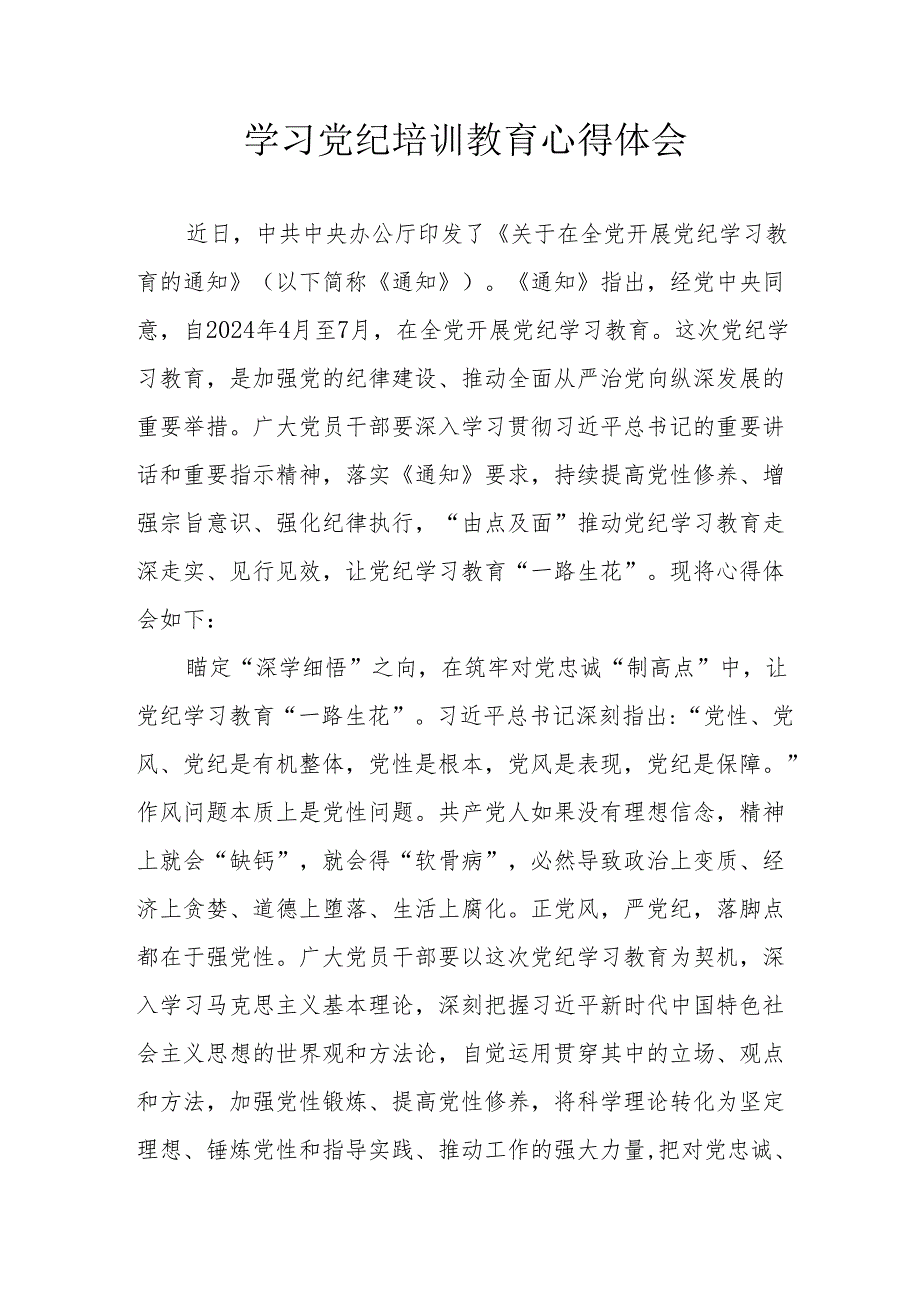 学习党纪培训教育心得体会
近日，中共中央办公厅印发了《关于在全党开展党纪学习教
育的通知》（以下简称《通知》）。《通知》指出，经党中央同
意，自2024年4月至7月，在全党开展党纪学习教育。这次党纪学
习教育，是加强党的纪律建设、推动全面从严治党向纵深发展的
重要举措。广大党员干部要深入学习贯彻习近平总书记的重要讲
话和重要指示精神，落实《通知》要求，持续提高党性修养、增
强宗旨意识、强化纪律执行，“由点及面”推动党纪学习教育走
深走实、见行见效，让党纪学习教育“一路生花”。现将心得体
会如下：
瞄定“深学细悟”之向，在筑牢对党忠诚“制高点”中，让
党纪学习教育“一路生花”。习近平总书记深刻指出：“党性、党
风、党纪是有机整体，党性是根本，党风是表现，党纪是保障。”
作风问题本质上是党性问题。共产党人如果没有理想信念，精神
上就会“缺钙”，就会得“软骨病”，必然导致政治上变质、经
济上贪婪、道德上堕落、生活上腐化。正党风，严党纪，落脚点
都在于强党性。广大党员干部要以这次党纪学习教育为契机，深
入学习马克思主义基本理论，深刻把握习近平新时代中国特色社
会主义思想的世界观和方法论，自觉运用贯穿其中的立场、观点
和方法，加强党性锻炼、提高党性修养，将科学理论转化为坚定
理想、锤炼党性和指导实践、推动工作的强大力量,把对党忠诚、